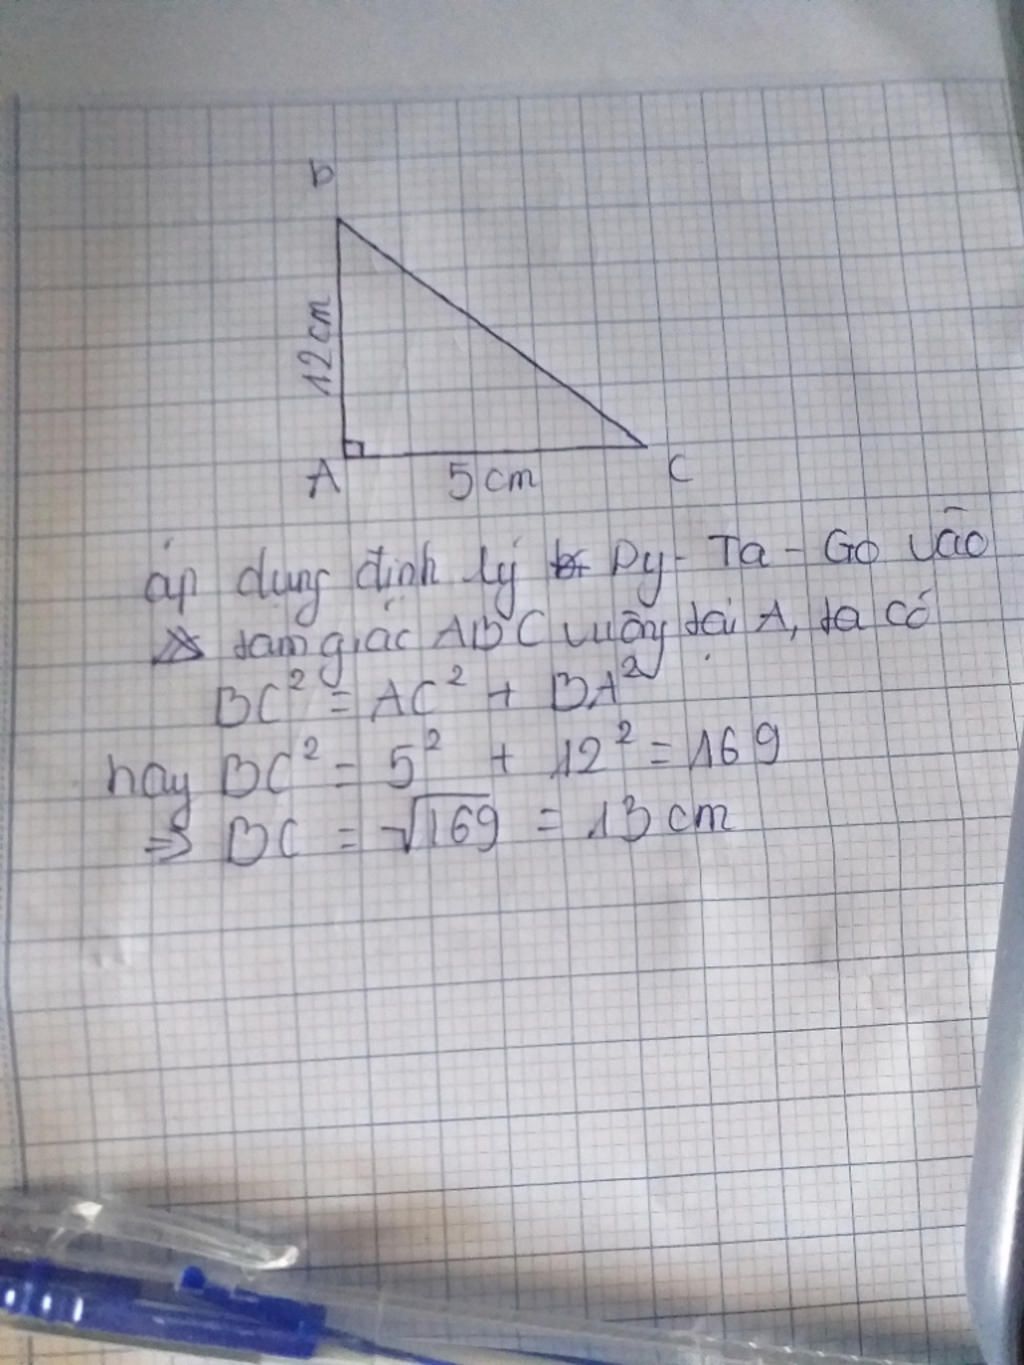 B
12cm
A
5cm
C
áp dụng định lý Py-Ta-Go vào
tam giác ABC vuông tại A, ta có
BC² = AC² + BA²
hay BC² = 5² + 12² = 169
=> BC = √169 = 13 cm